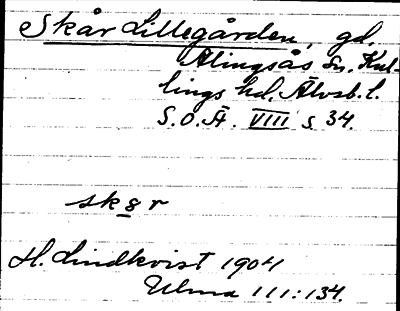 Skår Lillegården, gd,
Alingsås sn. Kul-
lings hd, Älvsb. l.
S.O.Ä. VIII s. 34.
skår
H. Lindkvist 1904
Ulma 111:134.